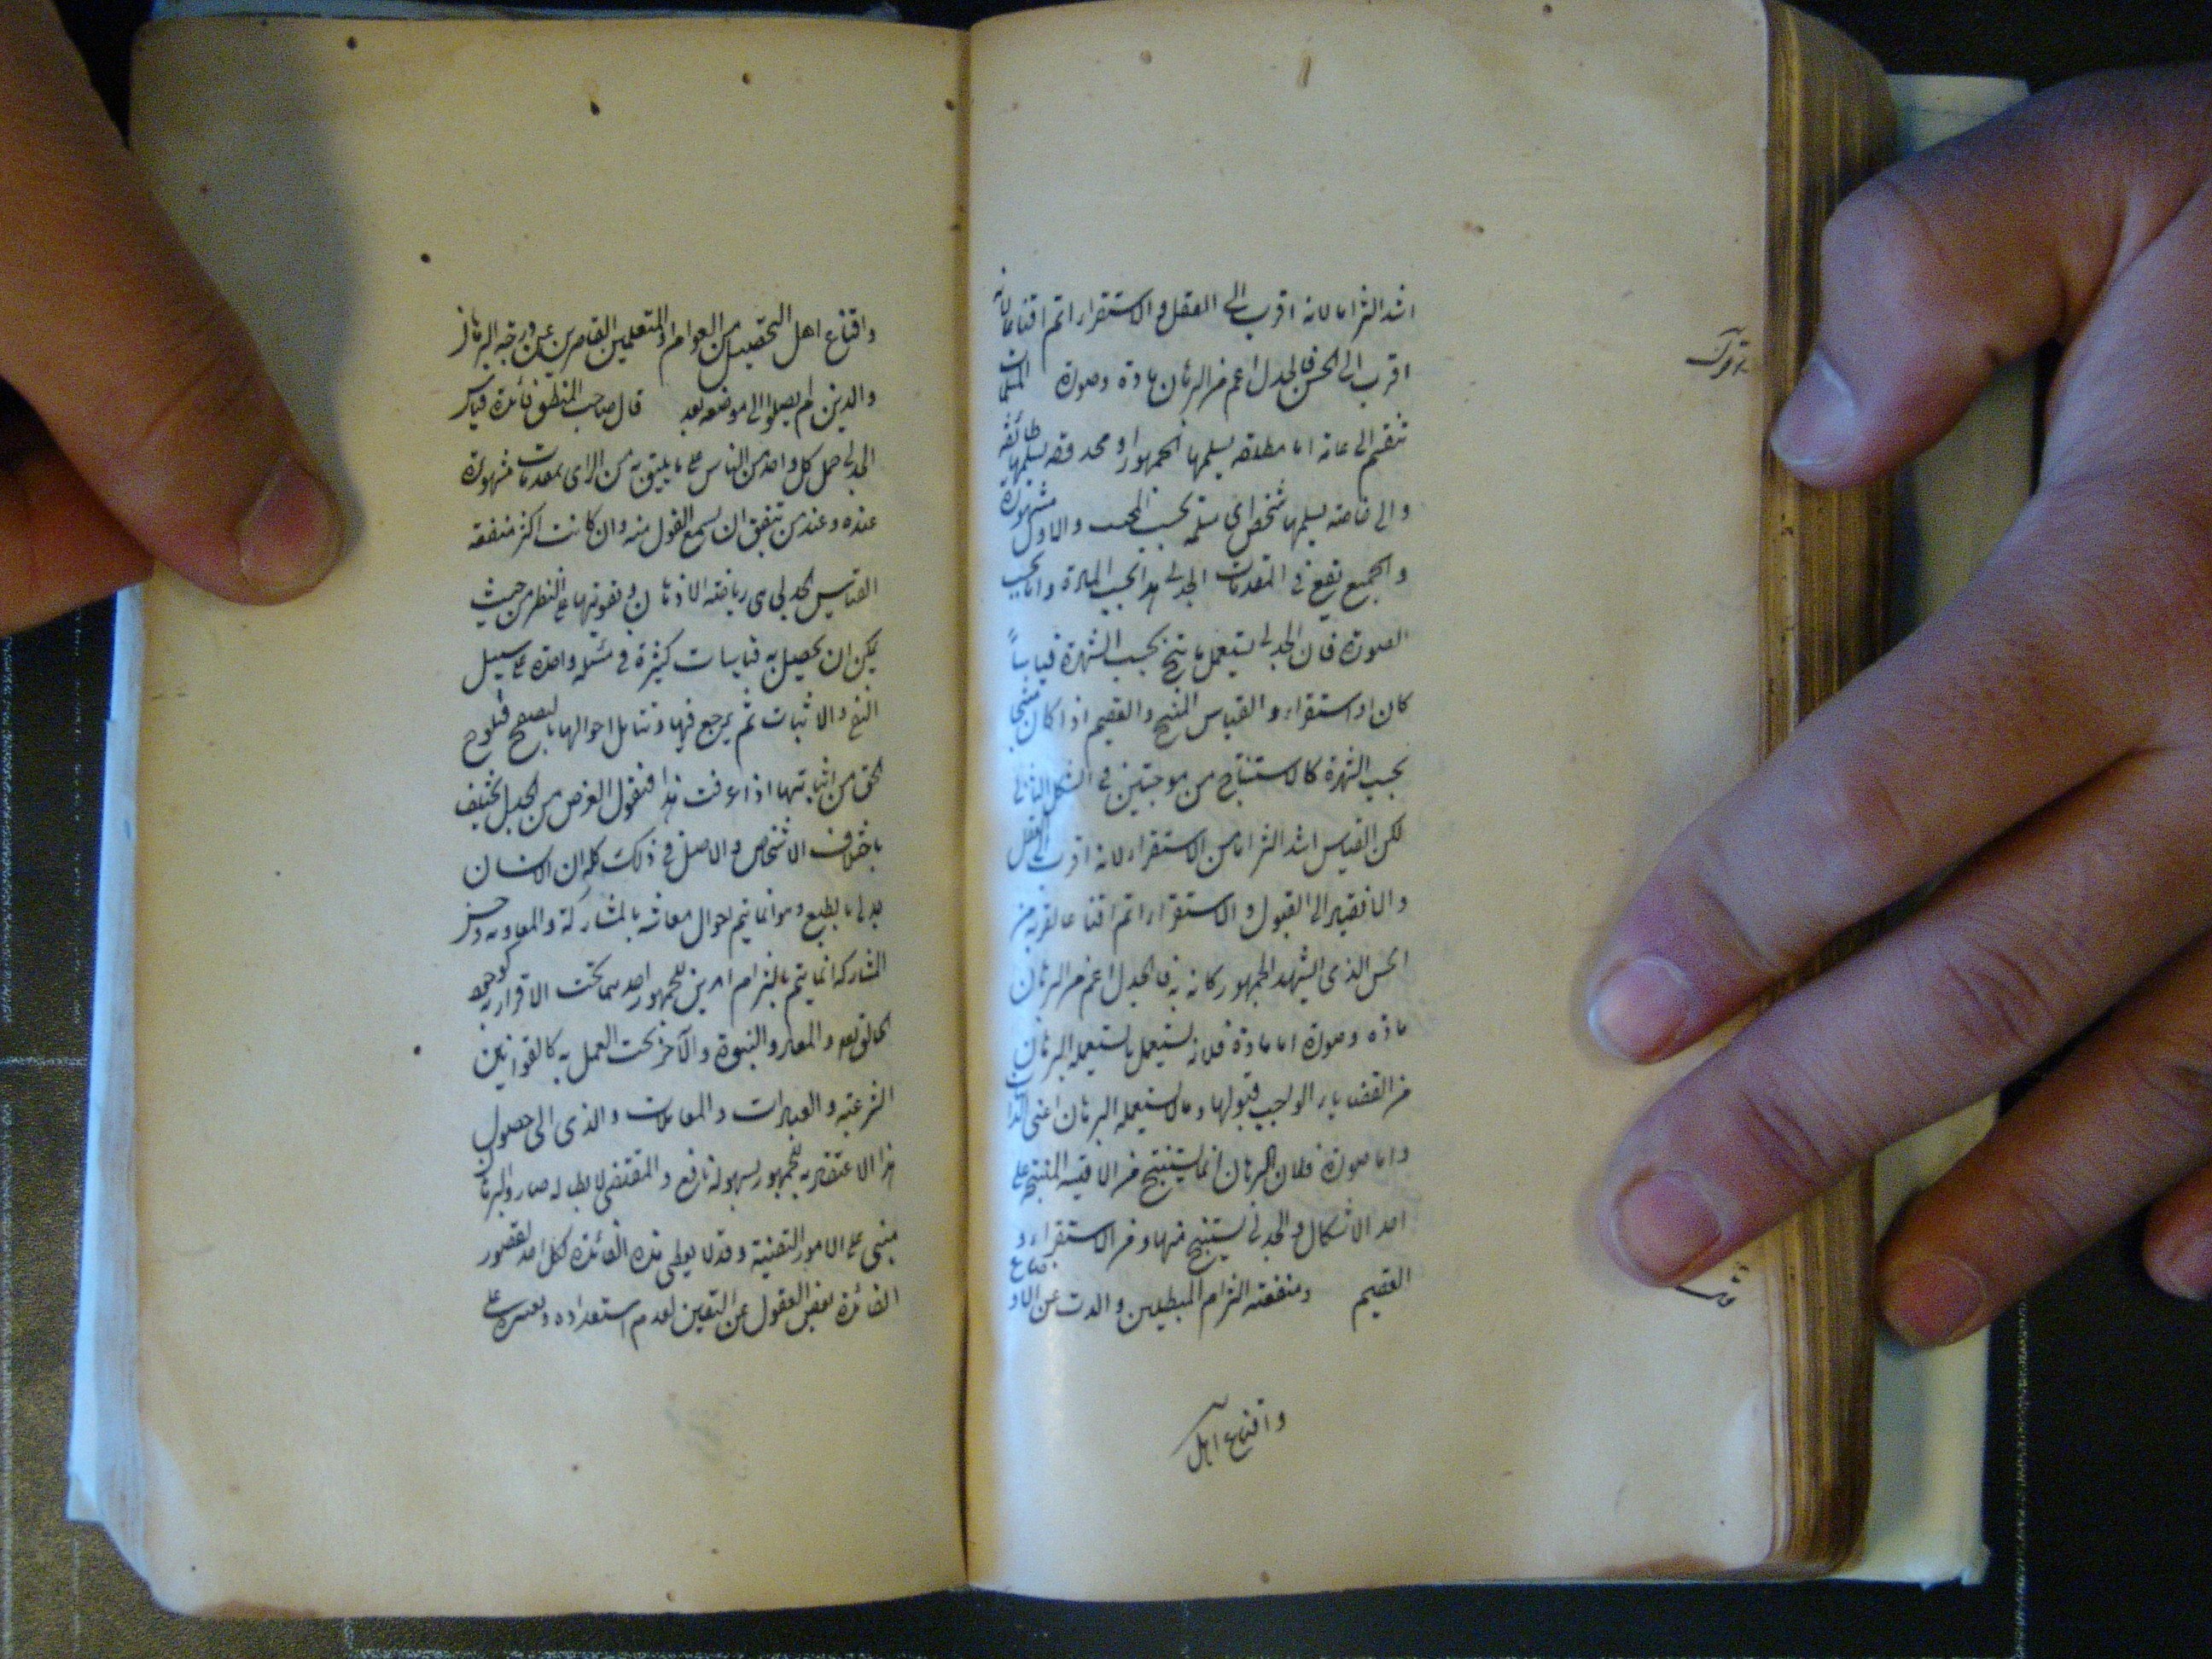 اشد الزاما لانه اقرب الى العقل و الاستقراء اتم اقناعا لانه
اقرب الى الحس فالجدل اعم من البرهان مادة وصورة المسلمات
تنقسم الى عامة اما مطلقه يسلمها الجمهور او محدوده يسلمها طائفة
والى خاصة يسلمها شخص اى مسلمه بحسب المجيب والاول مشهورة
والجميع يقع في المقدمات الجدلى هذا بحسب المادة واما بحسب
الصورة فان الجدلى يستعمل ما ينتج بحسب الشهرة قياساً
كان او استقراء و القياس المنتج والعقيم اذا كان منتجا
بحسب الشهرة كالاستنتاج من موجبتين في الشكل الثانى
لكن القياس اشد الزاما من الاستقراء لانه اقرب الى العقل
والافتقار الى القبول و الاستقراء اتم اقناعا لقربه من
الحس الذى يشهد الجمهور كانه به فالجدل اعم من البرهان
مادة وصورة اما مادة فلانه يستعمل ما يستعمله البرهان
من القضايا الواجب قبولها وما لا يستعمله البرهان اعنى
واما صورة فلان البرهان انما يستنتج من الاقيسه المنتجه على
احد الاشكال والجدلى يستنتج منها و من الاستقراء و
العقيم ومنفعته الزام المبطلين والذب عن الاوضاع
واقناع اهل
واقناع اهل التحصيل من العوام والمتعلمين القاصرين عن درجة البرهان
والذين لم يصلوا الى موضعه بعد قال صاحب المنطق فائدة قياس
الجدلى حمل كل واحد من الناس على ما يليق به من الراى بمقدمات مشهورة
عنده وعند من يتفق ان يسمع القول منه وان كانت اكثر منفعة
القياس الجدلى هى رياضة الاذهان و تقويتها على النظر من حيث
يمكن ان يحصل به قياسات كثيرة في مسئلة واحدة على سبيل
النفى والاثبات ثم يرجع فيها و تتامل احوالها بالتصفح فيلوح
الحق من اثباتها اذا عرفت هذا فنقول الغرض من الجدل يختلف
باختلاف الاشخاص والاصل في ذلك كله ان الانسان
مدنى بالطبع وهو انما يتم احوال معاشه بالمشاركة والمعاونه وحسن
المشاركه انما يتم بالتزام امرين للجمهور احدهما تحت الاقرار به كوجود
الخالق تع والمعاد والنبوة والآخر تحت العمل به كالقوانين
الشرعية والعبادات والمعاملات والذى الى حصول
هذا الاعتقاد به للجمهور بسهولة نافع والمقتضى لابطاله ضار والبرهان
مبنى على الامور اليقينية وقد لا يعطى هذه الفائدة لكل احد لقصور
الفائدة بعض العقول عن اليقين لعدم استعداده وتعسره على